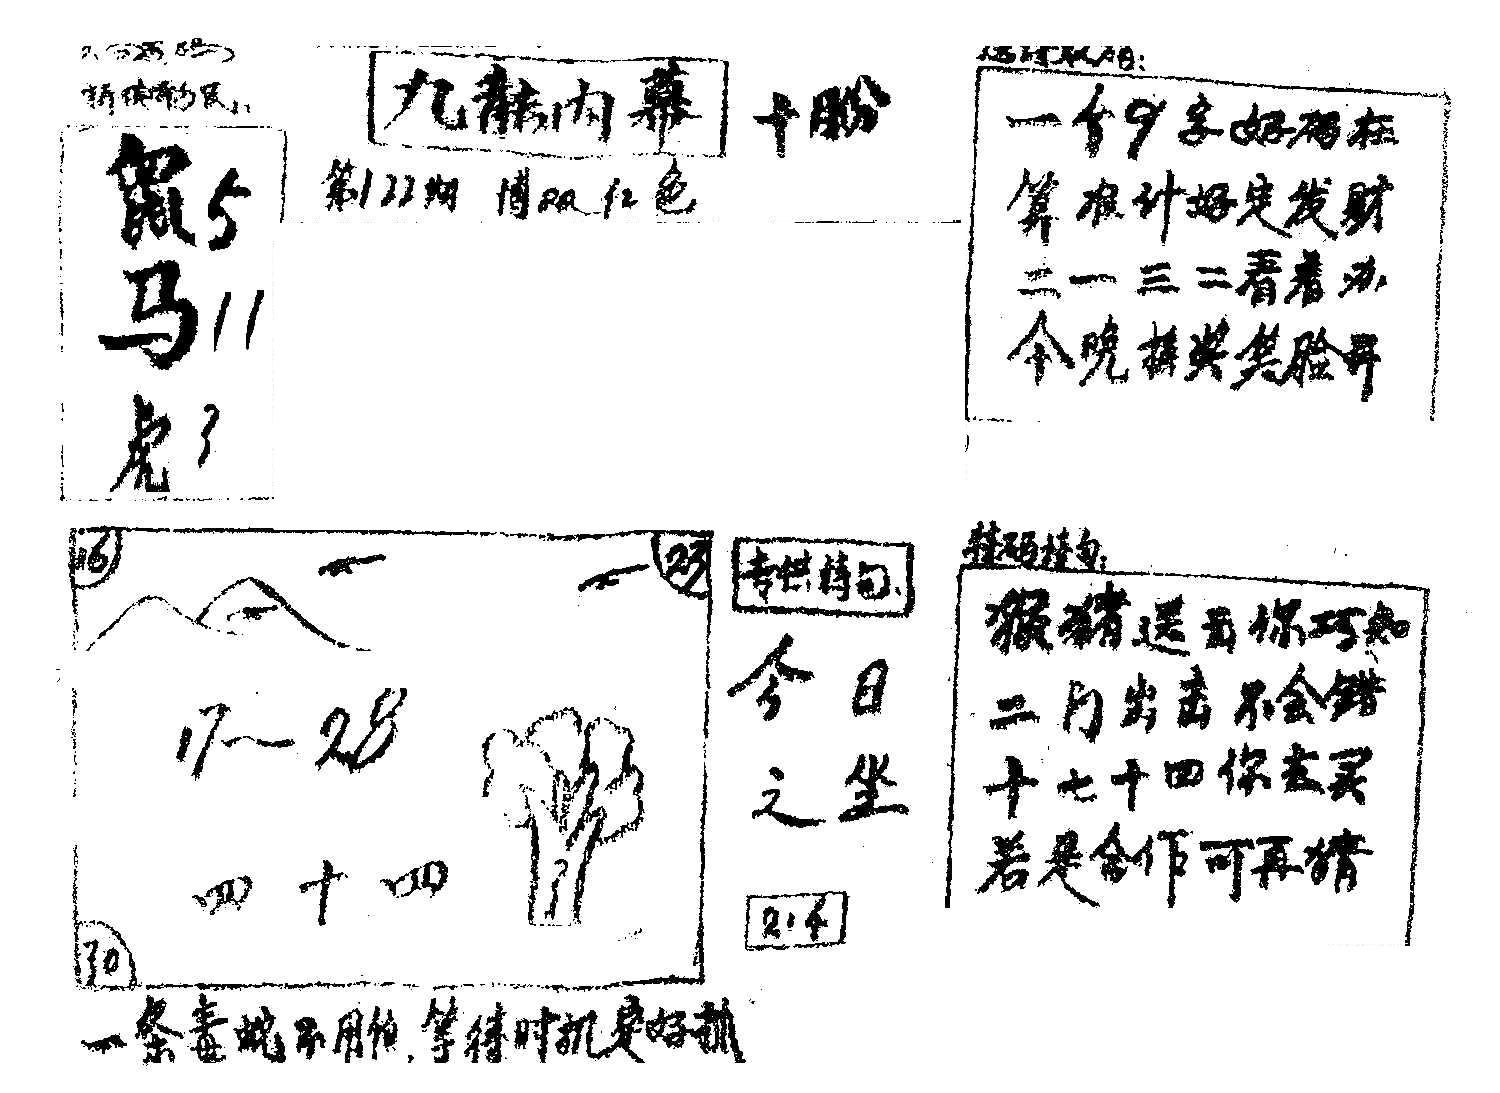 九龙内幕
第122期 博 红色
鼠5
马11
虎3
一个9字好码在
算准计好定发财
二一三二看着办
今晚接奖笑脸开
16
23
17~28
四十四
30
专供特句
今日
之坐
2.4
特码特句:
猴猪送去你巧知
二门出击不会错
十七十四你去买
若是合作可再猜
一条毒蛇不用怕,等待时机是好抓